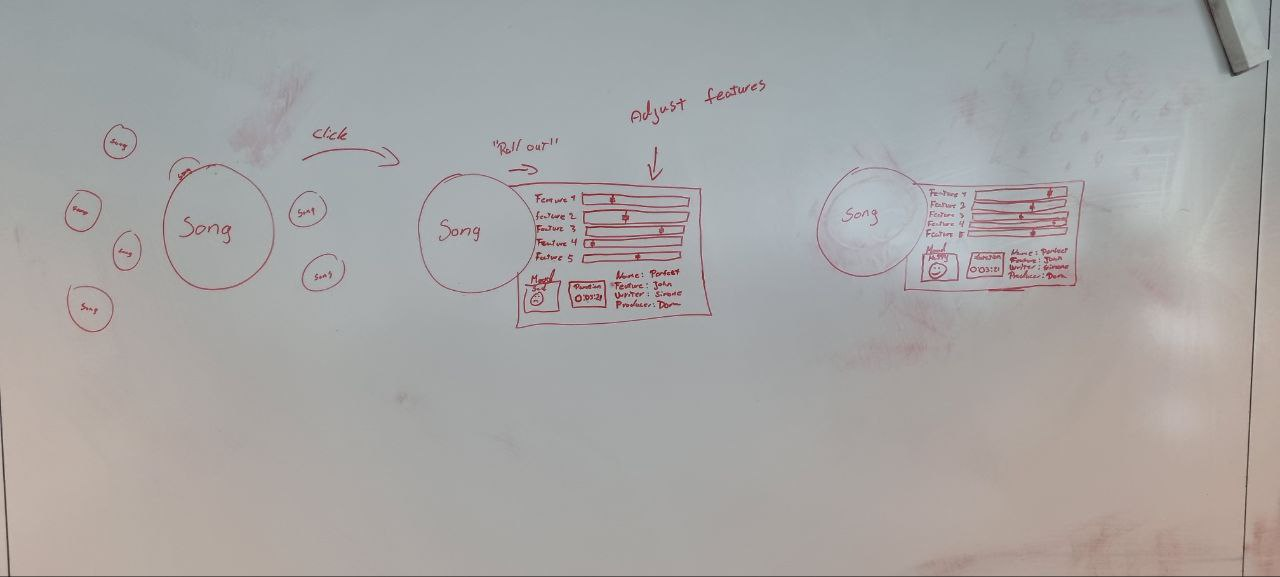 Song
Song
Song
Song
Song
Song
Song
Song
click
Song
"Roll out"
Adjust features
Feature 1
Feature 2
Feature 3
Feature 4
Feature 5
Mood
Sad
Duration
0:03:21
Name: Perfect
Feature: John
Writer: Simone
Producer: Dorn
Song
Feature 1
Feature 2
Feature 3
Feature 4
Feature 5
Mood
Happy
Duration
0:03:21
Name: Perfect
Feature: John
Writer: Simone
Producer: Dorn